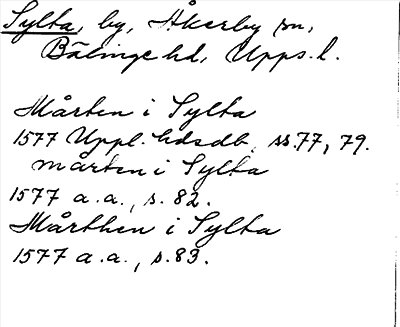 Sylta, by, Åkerby sn,
Bälinge hd, Upps. l.
Mårten i Sylta
1577 Uppl. hdsdb. ss. 77, 79.
mårten i Sylta
1577 a.a., s. 82.
Mårthen i Sylta
1577 a.a., s. 83.